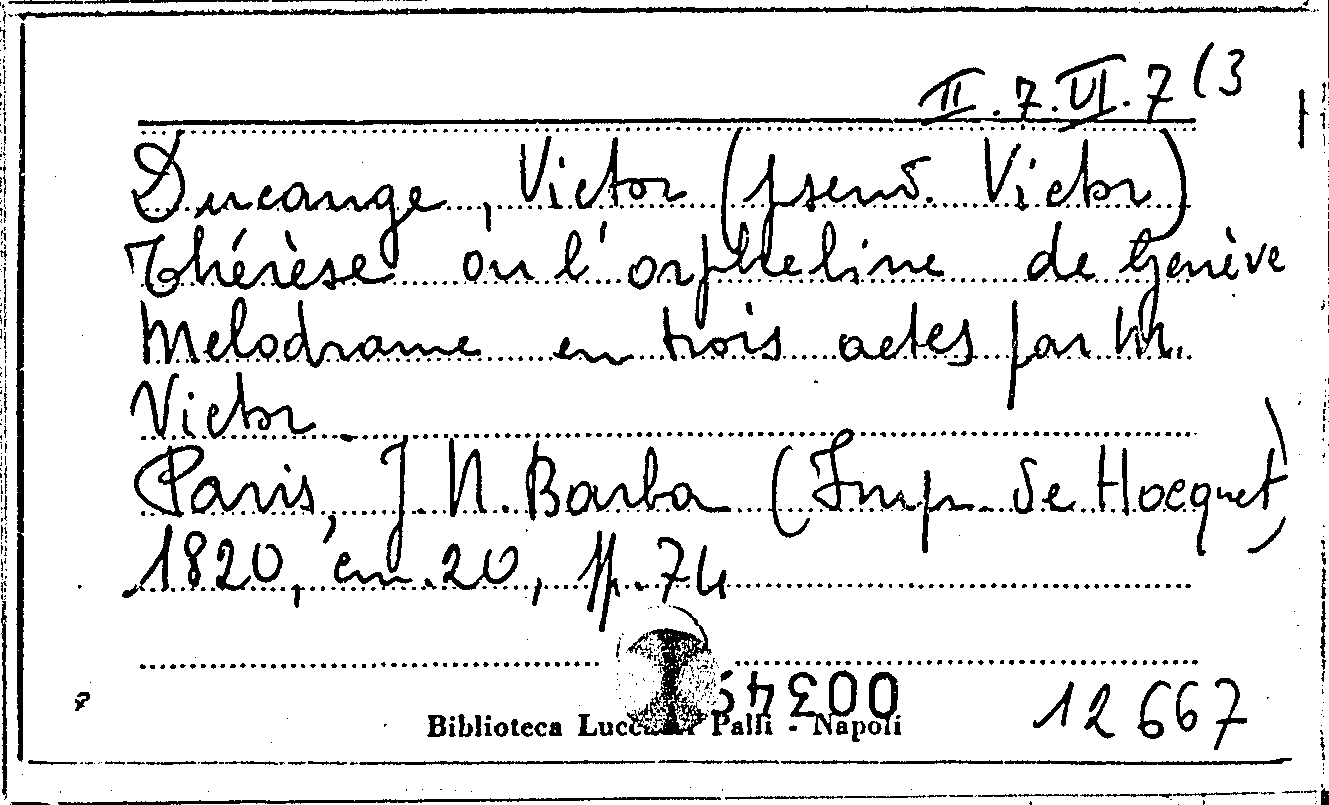 II.7.VI.7(3
Ducange, Victor (pseud. Victor)
Thérèse ou l'orpheline de Genève
Melodrame en trois actes par M.
Victor
Paris, J. N. Barba (Imp. de Hocquet)
1820, cm. 20, pp. 74
Biblioteca Palli - Napoli
12667